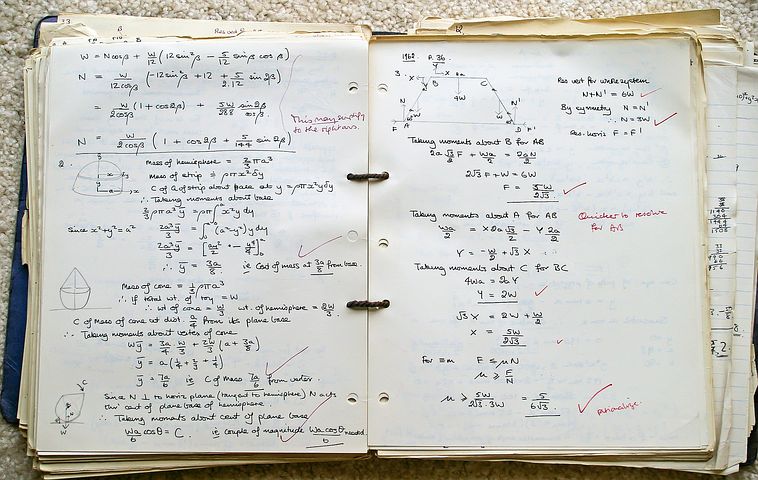 W = N cos β + W/12 (12 sin²β − 5/12 sin β cos β)
N = W/12cosβ (-12 sin²β + 12 + 5/2.12 sin 2β)
= W/2cosβ (1 + cos 2β) + 5W/288 sin 2β/cos β.
This may simplify
to the right ans.
N = W/2cosβ (1 + cos 2β + 5/144 sin 2β)
2.
Mass of hemisphere = 2/3 ρπa³
Mass of strip = πx²δy
C of G of strip about base at y = ρπx²yδy
∴ Taking moments about base
2/3 ρπa³ȳ = ρπ∫x²y dy
Since x²+y² = a²
2a³ȳ/3 = ∫(a²−y²)y dy
2a³ȳ/3 = [a²y²/2 − y⁴/4]
∴ ȳ = 3a/8 ie C of mass at 3a/8 from base.
Mass of cone = 1/3 ρπa³
∴ If total wt. of toy = W
∴ wt of cone = W/3 wt. of hemisphere = 2W/3
C of Mass of cone at dist. a/4 from its plane base
∴ Taking moments about vertex of cone
Wȳ = 3a/4 W/3 + 2W/3 (a + 3a/8)
ȳ = a(1/4 + 2/3 + 1/4)
ȳ = 7a/6 ie C of Mass 7a/6 from vertex.
Since N ⊥ to horiz plane (tangent to hemisphere) N acts
thro' cent of plane base of hemisphere
∴ Taking moments about cent of plane base
Wa/6 cos θ = C. ie couple of magnitude Wa cos θ/6 needed.
1962. P. 36.
3.
Res vert for whole system
N + N' = 6W
By symmetry N = N'
∴ N = 3W
Res. horiz F = F'
Taking moments about B for AB
2a√3/2 F + Wa/2 = 2aN/2
2√3 F + W = 6W
F = 5W/2√3
Taking moments about A for AB
Quicker to resolve
for AB
Wa/2 = X 2a√3/2 − Y 2a/2
Y = −W/2 + √3 X
Taking moments about C for BC
4Wa = 2aY
Y = 2W
√3 X = 2W + W/2
X = 5W/2√3
For = m F ≤ μN
μ ≥ F/N
μ ≥ 5W/2√3.3W = 5/6√3
rationalize.